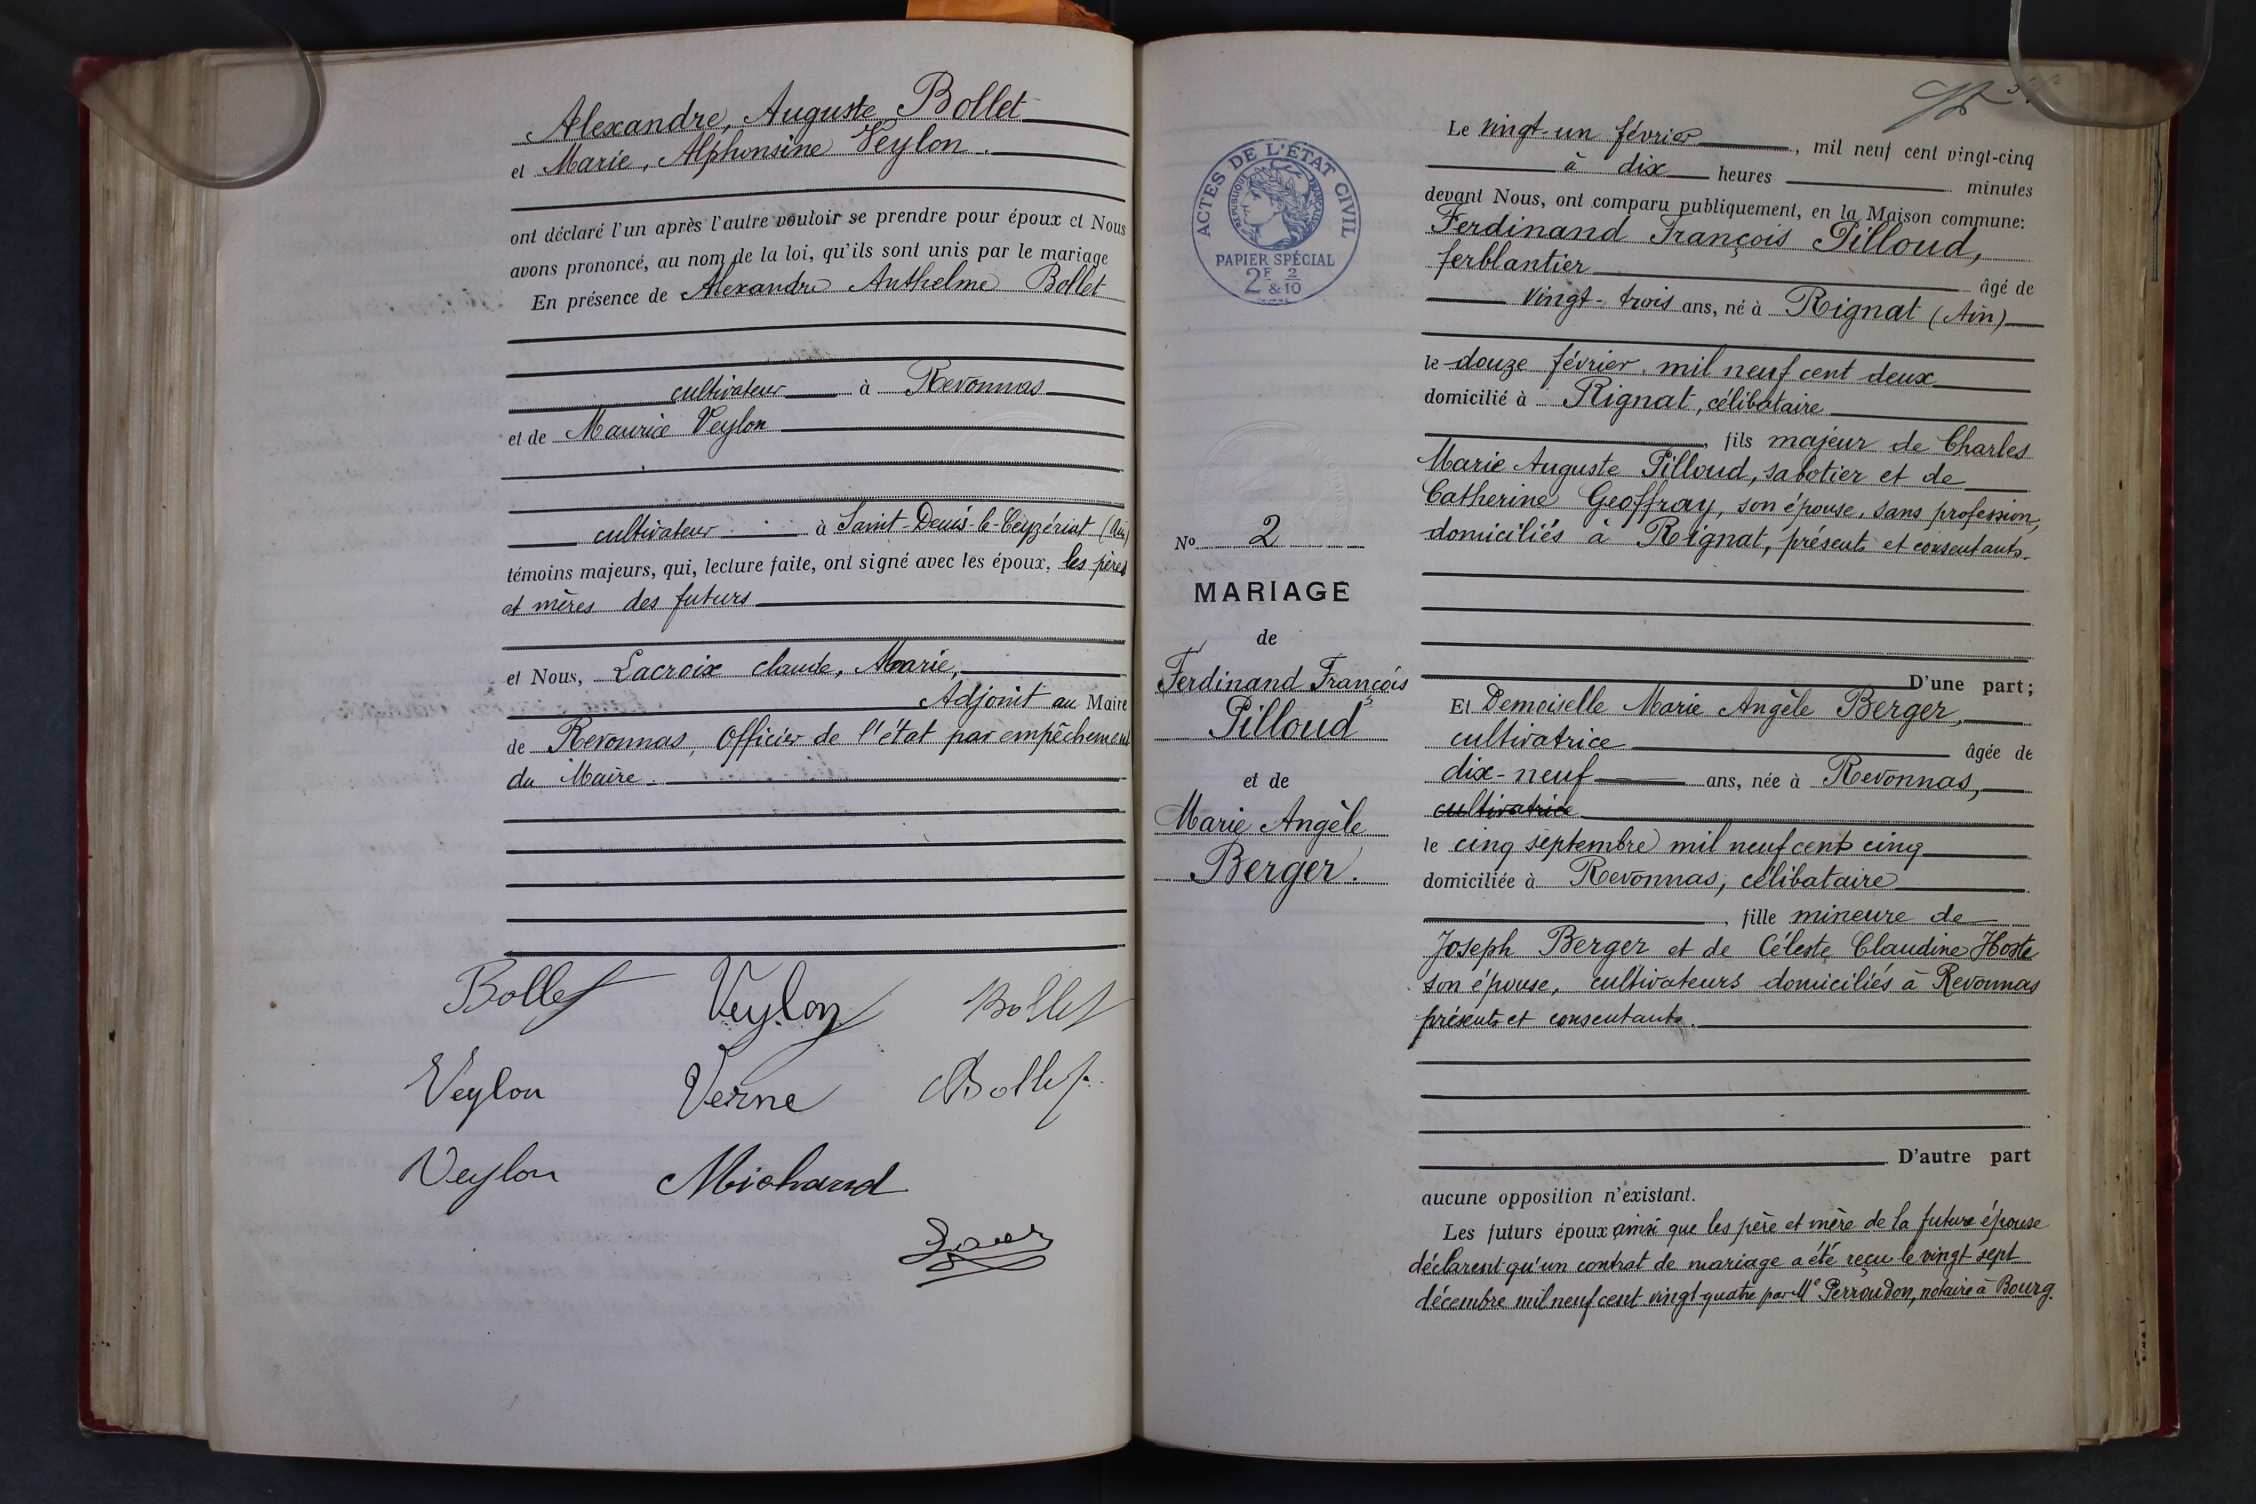 Alexandre, Auguste Bollet
et Marie, Alphonsine Veylon.
ont déclaré l'un après l'autre vouloir se prendre pour époux et Nous
avons prononcé, au nom de la loi, qu'ils sont unis par le mariage
En présence de Alexandre Anthelme Bollet
cultivateur à Revonnas
et de Maurice Veylon
cultivateur à Saint-Denis-le-Ceyzériat (Ain)
témoins majeurs, qui, lecture faite, ont signé avec les époux, les pères
et mères des futurs
et Nous, Lacroix claude, Marie,
Adjoint au Maire
de Revonnas, Officier de l'état par empêchement
du Maire.
Bollet Veylon Bollet
Veylon Verne Bollet
Veylon Michaud
ACTES DE L'ÉTAT CIVIL
RÉPUBLIQUE FRANÇAISE
PAPIER SPÉCIAL
2F & 2/10
No 2
MARIAGE
de
Ferdinand François
Pilloud
et de
Marie Angèle
Berger.
Le vingt-un février, mil neuf cent vingt-cinq
à dix heures minutes
devant Nous, ont comparu publiquement, en la Maison commune:
Ferdinand François Pilloud,
ferblantier âgé de
vingt-trois ans, né à Rignat (Ain)
le douze février mil neuf cent deux
domicilié à Rignat, célibataire
, fils majeur de Charles
Marie Auguste Pilloud, sabotier et de
Catherine Geoffray, son épouse, sans profession,
domiciliés à Rignat, présents et consentants.
D'une part;
Et Demoiselle Marie Angèle Berger,
cultivatrice âgée de
dix-neuf ans, née à Revonnas,
cultivatrice
le cinq septembre mil neuf cent cinq
domiciliée à Revonnas, célibataire
, fille mineure de
Joseph Berger et de Céleste Claudine Hoste
son épouse, cultivateurs domiciliés à Revonnas
présents et consentants.
D'autre part
aucune opposition n'existant.
Les futurs époux ainsi que les père et mère de la future épouse
déclarent qu'un contrat de mariage a été reçu le vingt sept
décembre mil neuf cent vingt-quatre par Me Perroudon, notaire à Bourg.